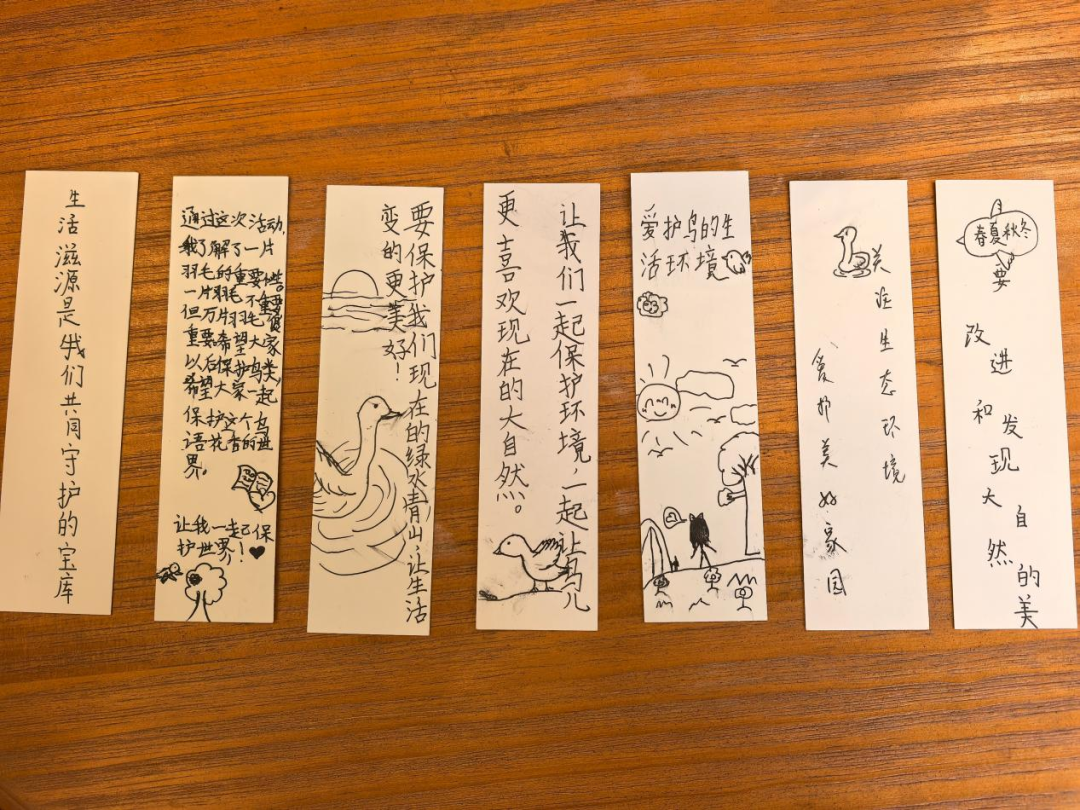 生活滋源是我们共同守护的宝库
通过这次活动,
我了解了一片
羽毛的重要性
一片羽毛不重要
但万片羽毛很
重要希望大家
以后保护鸟类,
希望大家一起
保护这个鸟
语花香的世
界,
让我一起保
护世界!
要保护我们现在的绿水青山,让生活
变的更美好!
让我们一起保护环境,一起让鸟儿
更喜欢现在的大自然。
爱护鸟的生
活环境
关注生态环境
爱护美好家园
春夏秋冬
要
改进
和发现
大自然的美